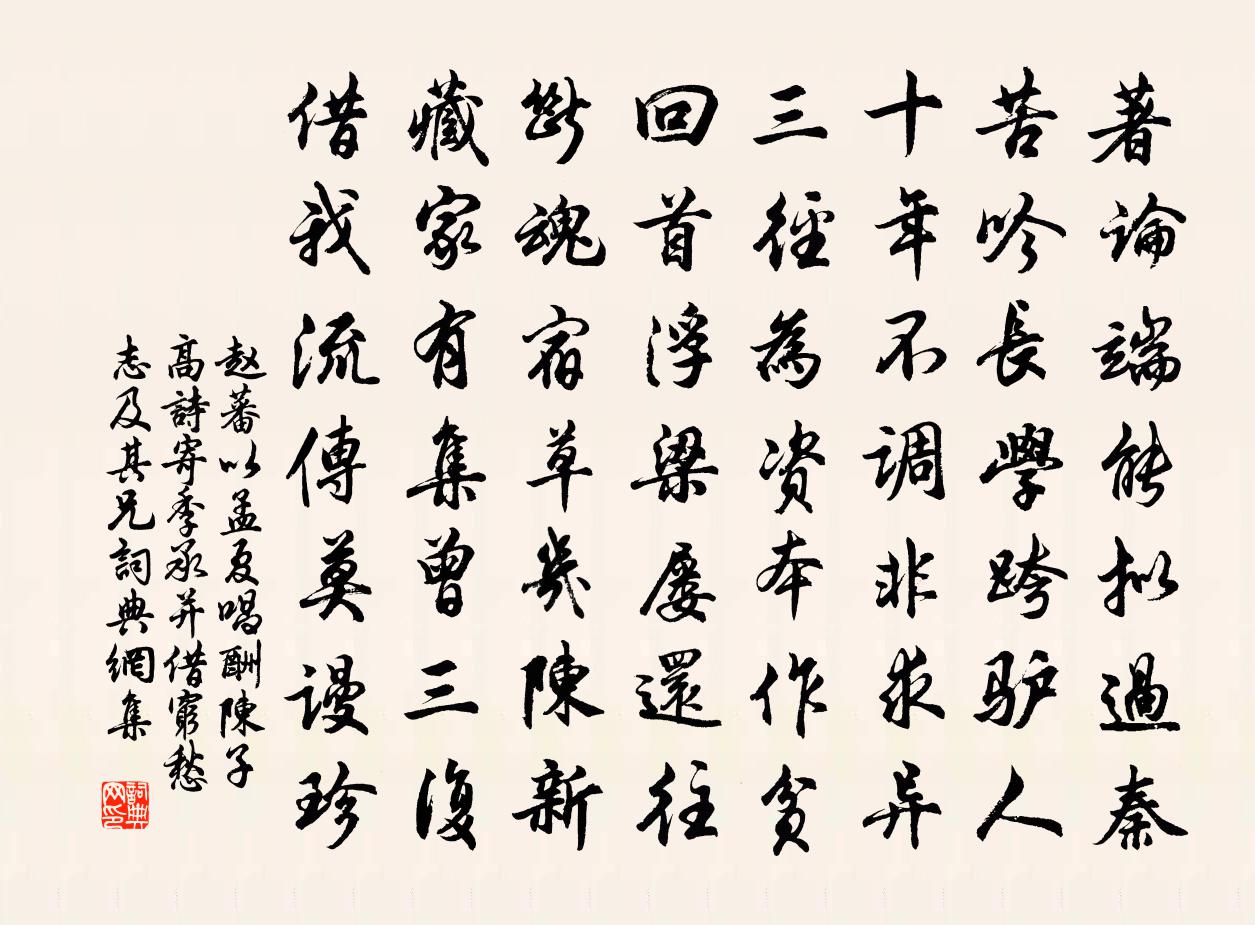 著論端能拟過秦
苦吟長學跨驴人
十年不調非求异
三徑為資本作貧
回首浮梁屡還往
斷魂宿草幾陳新
藏家有集曾三復
借我流傳莫謾珍
赵蕃以孟夏唱酬陳子
高詩寄季承并借窮愁
志及其兄詞典網集
詞典
网印